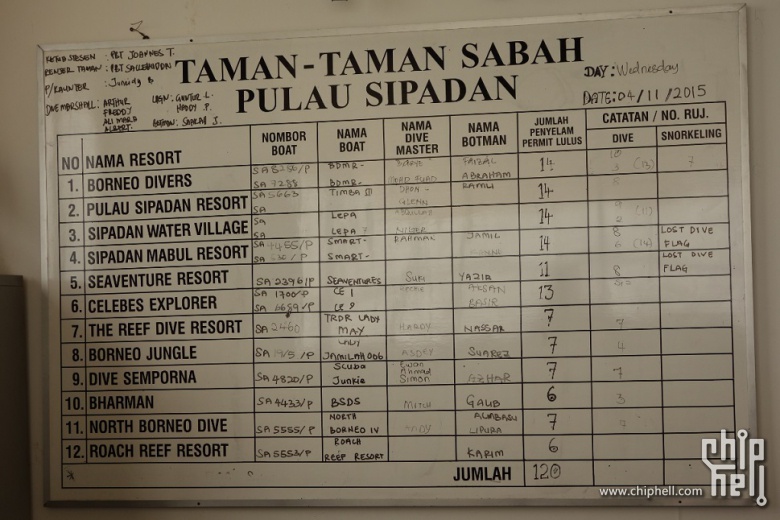 KETUA STESEN : PBT JOHANNES T.
RENJER TAMAN : PBT SALLEHUDDIN
P/KAUNTER : Juning B
DIVE MARSHALL : ARTHUR
FREDDY
ALI MARA
ALBERT.
TAMAN-TAMAN SABAH
PULAU SIPADAN
DAY: Wednesday
DATE: 04/11/2015
NO NAMA RESORT NOMBOR BOAT NAMA BOAT NAMA DIVE MASTER NAMA BOTMAN JUMLAH PENYELAM PERMIT LULUS CATATAN / NO. RUJ.
DIVE SNORKELING
1. BORNEO DIVERS BDMR- FAIZAL 14 (13) 7
SA 7288 BDMR- ABRAHAM
2. PULAU SIPADAN RESORT SA 5663 TIMBA III RAMLI 14
3. SIPADAN WATER VILLAGE SA LEPA 14 (11)
SA LEPA 7
4. SIPADAN MABUL RESORT SMART- RAHMAK JAMIL 14 8 LOST DIVE FLAG
SMART- 6 (14)
5. SEAVENTURE RESORT SA 2396/P SEAVENTURES SUKI YAZIR 11 8 LOST DIVE FLAG
6. CELEBES EXPLORER SA 1700/P CE 1 13
SA 6689/P CE 8 BASIR
7. THE REEF DIVE RESORT SA 2460 TRDR LADY MAY HARDY NASSAR 7 7
8. BORNEO JUNGLE LADY JAMILAH 006 SUAREZ 7 4
9. DIVE SEMPORNA SA 4820/P SCUBA Junkie Ewan Ahmad Simon AZHAR 7 7
10. BHARMAN SA 4433/P BSDS MITCH GALIB 6 3
11. NORTH BORNEO DIVE SA 5555/P NORTH BORNEO IV 7 7
12. ROACH REEF RESORT SA 5553/P ROACH REEF RESORT KARIM 6
JUMLAH 120
www.chiphell.com
chip hell